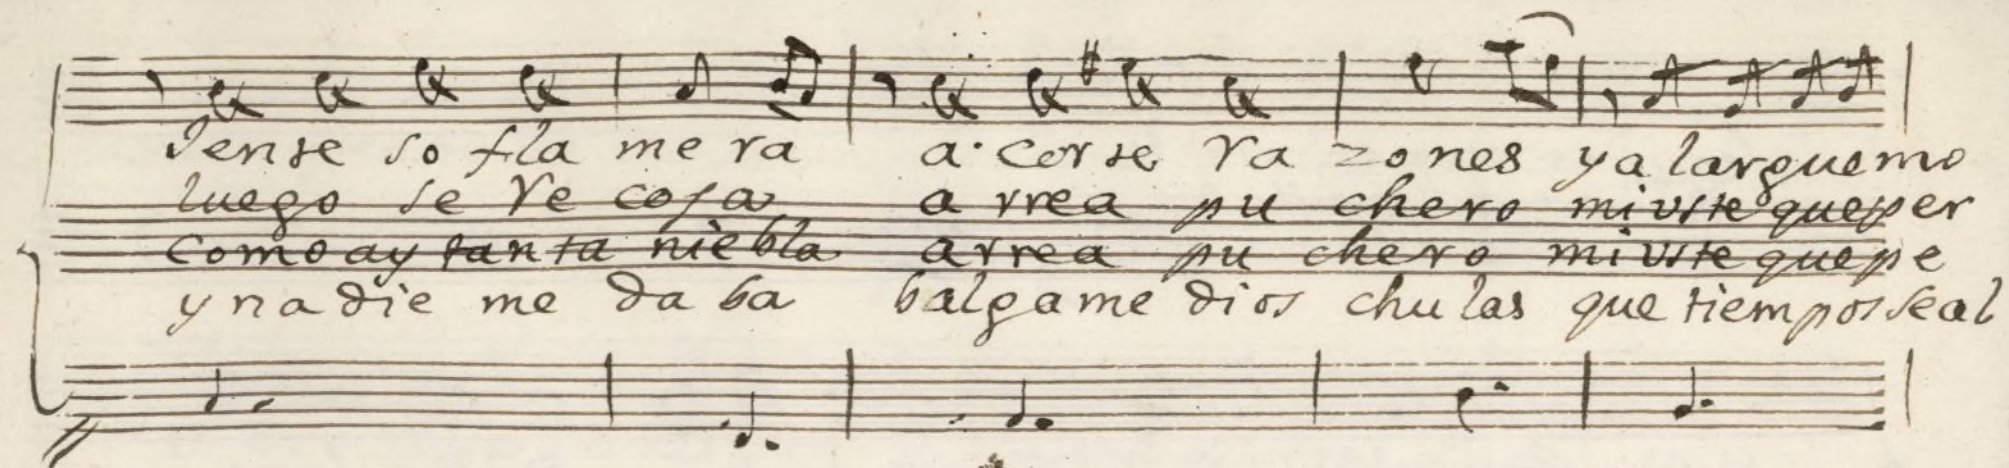 Jense so fla me ra a corse ra zones ya larguemo
luego se re cosa a rrea pu chero miuste que per
como ay tan ta niebla arrea pu chero miuste que pe
y na die me da ba balgame dios chulas que tiempos se al